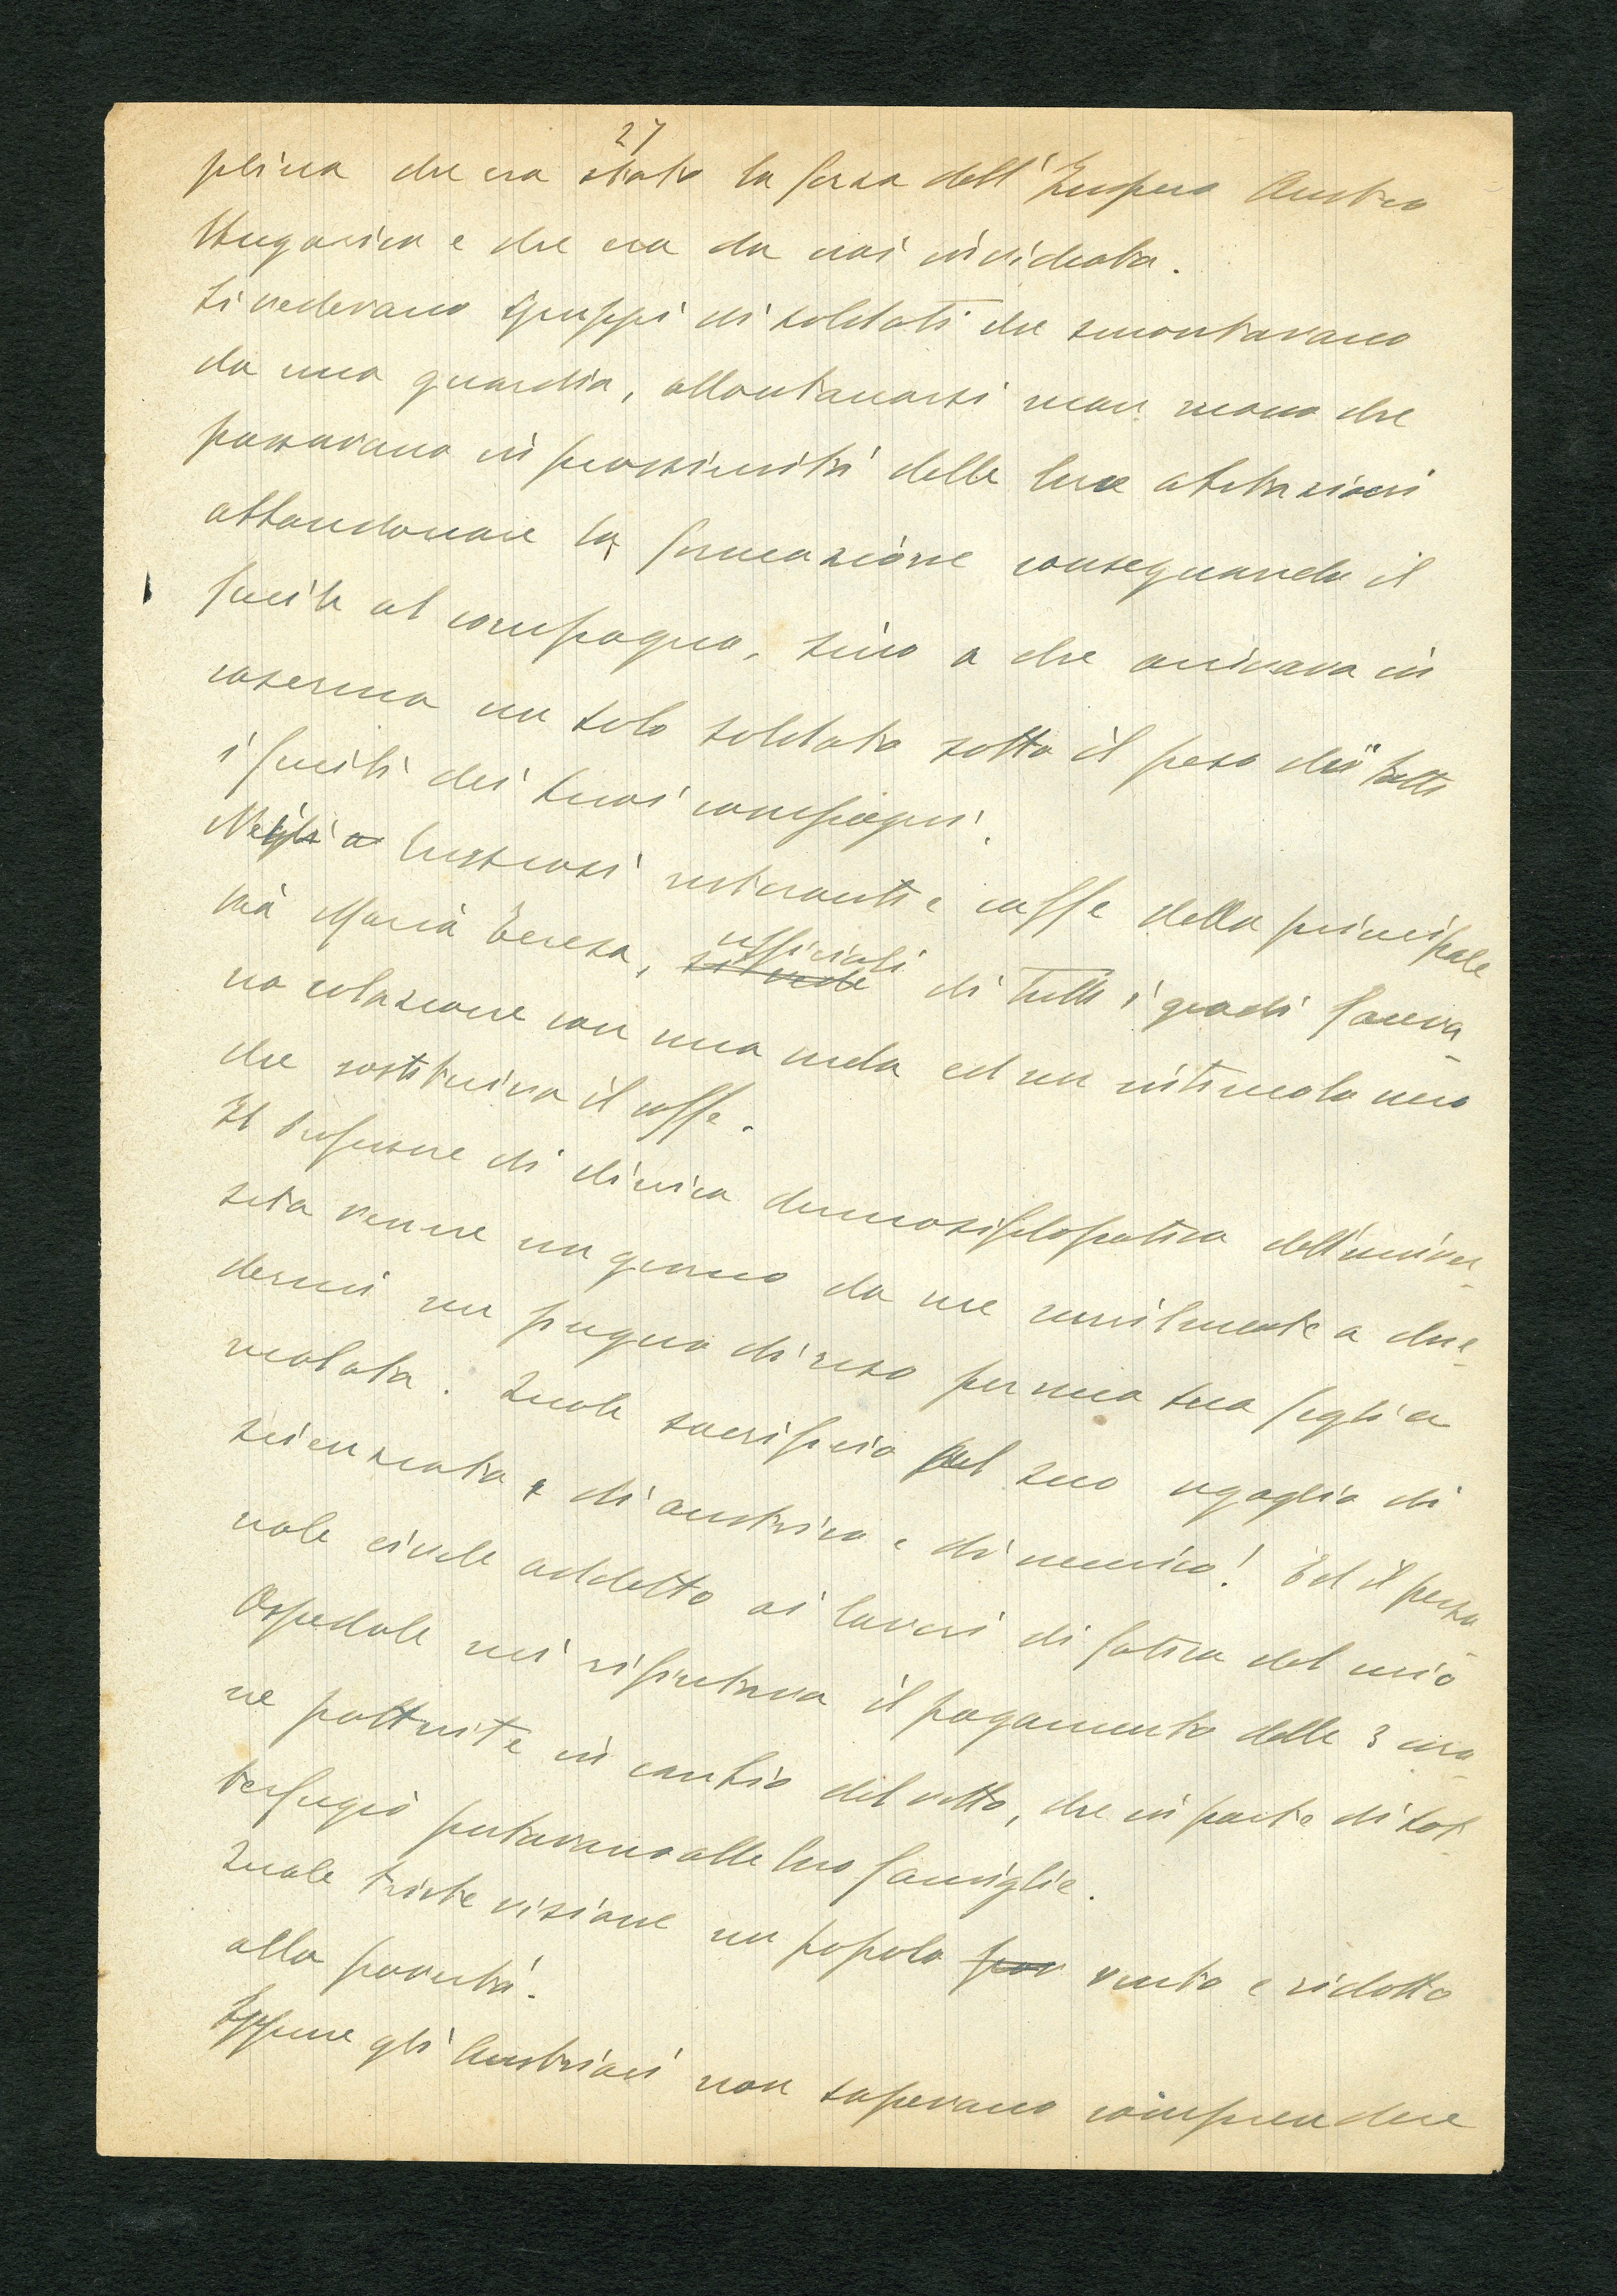 27
plina che era stata la forza dell'Impero Austro
Ungarico e che era da noi invidiata.
Si vedevano gruppi di soldati che smontavano
da una guardia, allontanarsi man mano che
passavano in prossimità delle loro abitazioni
abbandonare la formazione consegnando il
fucile al compagno, sino a che arrivava in
caserma un solo soldato sotto il peso di tutti
i fucili dei suoi compagni.
Nei lussuosi ristoranti e caffe della principale
via Maria Teresa, ufficiali di tutti i gradi faceva-
no colazione con una mela ed un intruglio nero
che sostituiva il caffe.
Il professore di clinica dermosifilopatica dell'univer-
sità venne un giorno da me umilmente a chie-
dermi un pugno di riso per una sua figlia
malata. Quale sacrificio pel suo orgoglio di
scienziato, di austriaco e di nemico! Ed il perso-
nale civile addetto ai lavori di fatica del mio
Ospedale mi rifiutava il pagamento delle 3 coro-
ne pattuite in cambio del vitto, che in parte di sot-
terfugio portavano alle loro famiglie.
Quale triste visione un popolo vinto e ridotto
alla povertà.
Eppure gli Austriaci non sapevano comprendere